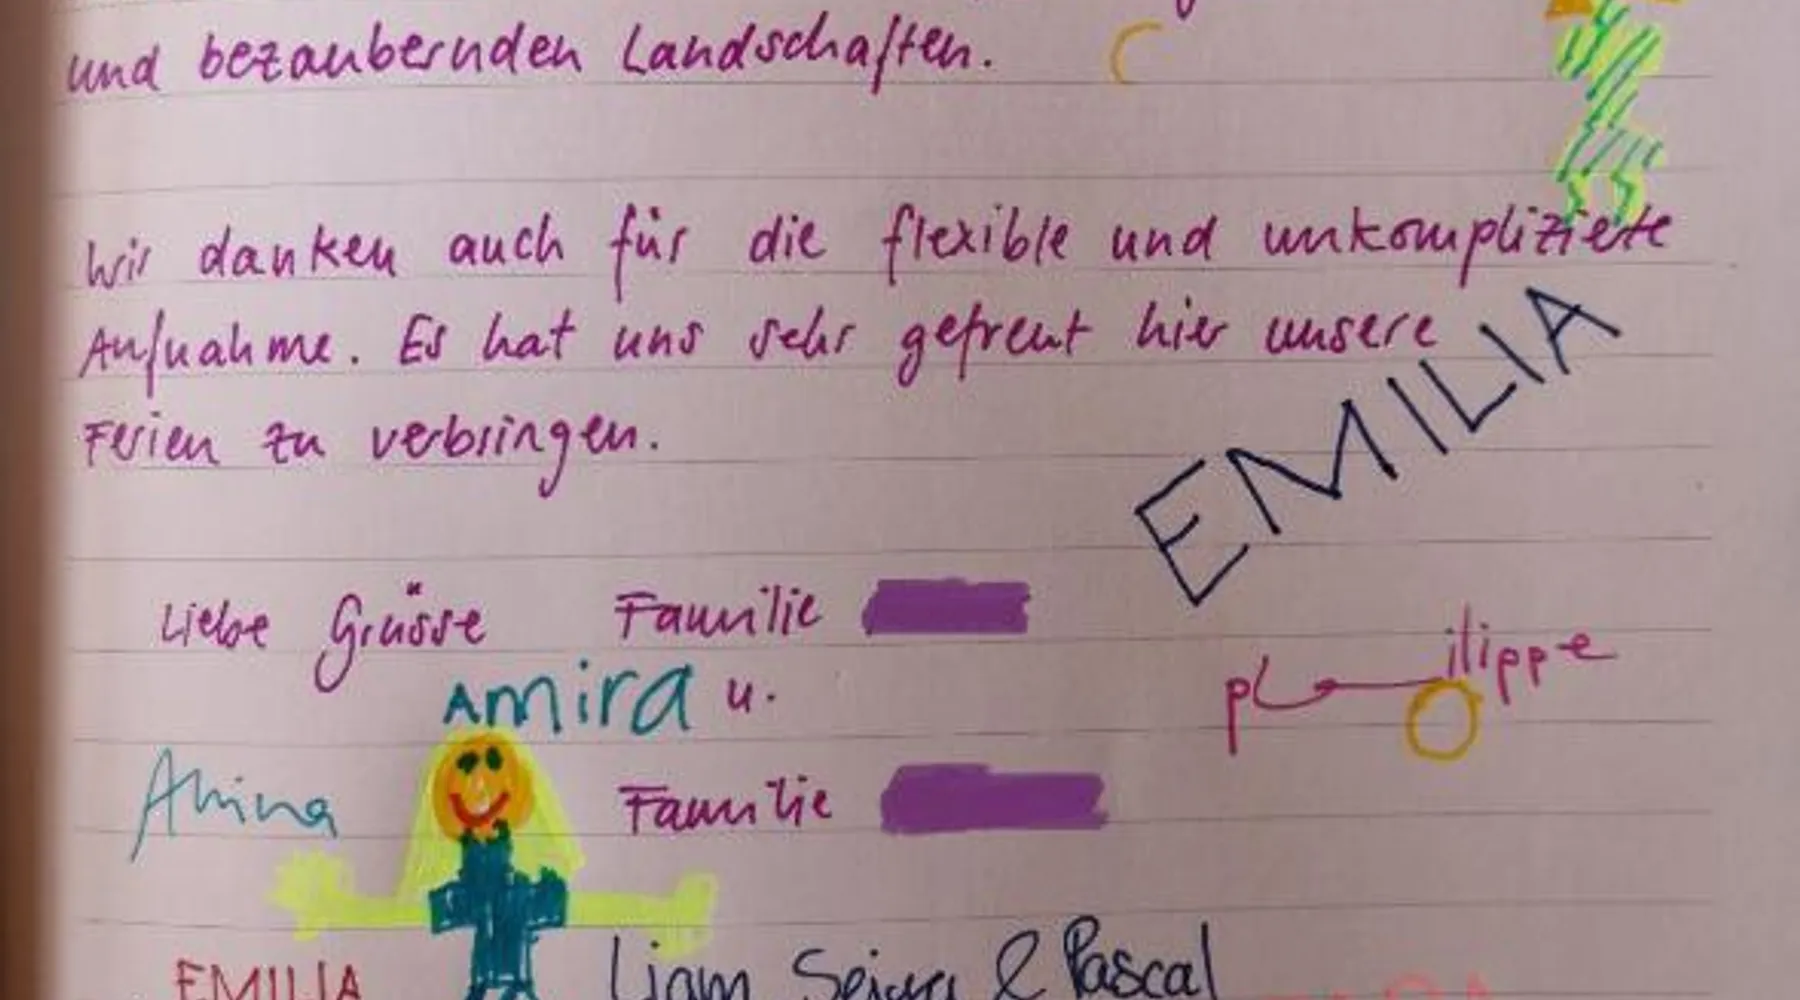 und bezaubernden Landschaften.
Wir danken auch für die flexible und unkomplizierte
Aufnahme. Es hat uns sehr gefreut hier unsere
Ferien zu verbringen.
EMILIA
Liebe Grüsse Familie
Amira u.
ilippe
Familie
EMILIA
Liam & Pascal